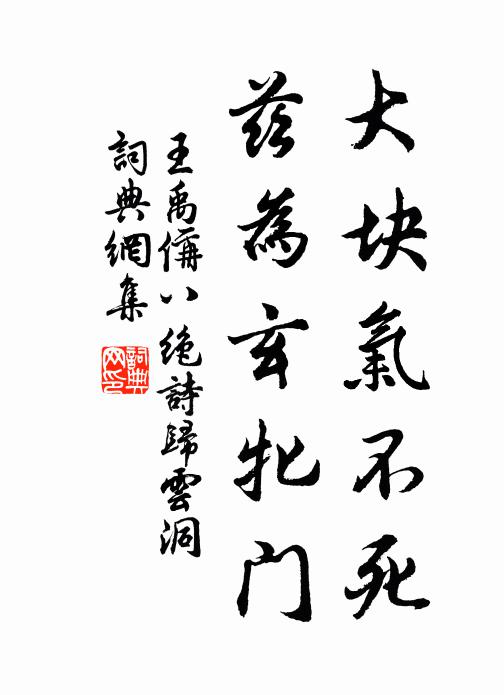 大块氣不死
茲為玄牝门
王禹偁八绝詩歸雲洞
詞典網集
詞典
网印